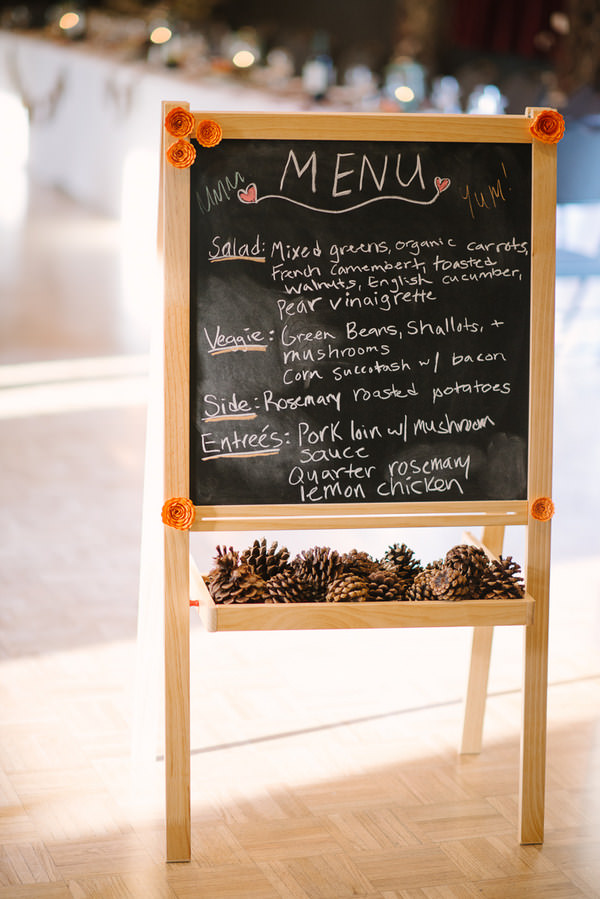 MENU
UMM
YUM!
Salad: Mixed greens, organic carrots,
French Camembert, toasted
walnuts, English cucumber,
Pear vinaigrette
Veggie: Green Beans, Shallots, +
mushrooms
Corn succotash w/ bacon
Side: Rosemary roasted potatoes
Entreés: Pork loin w/ mushroom
sauce
Quarter rosemary
lemon chicken